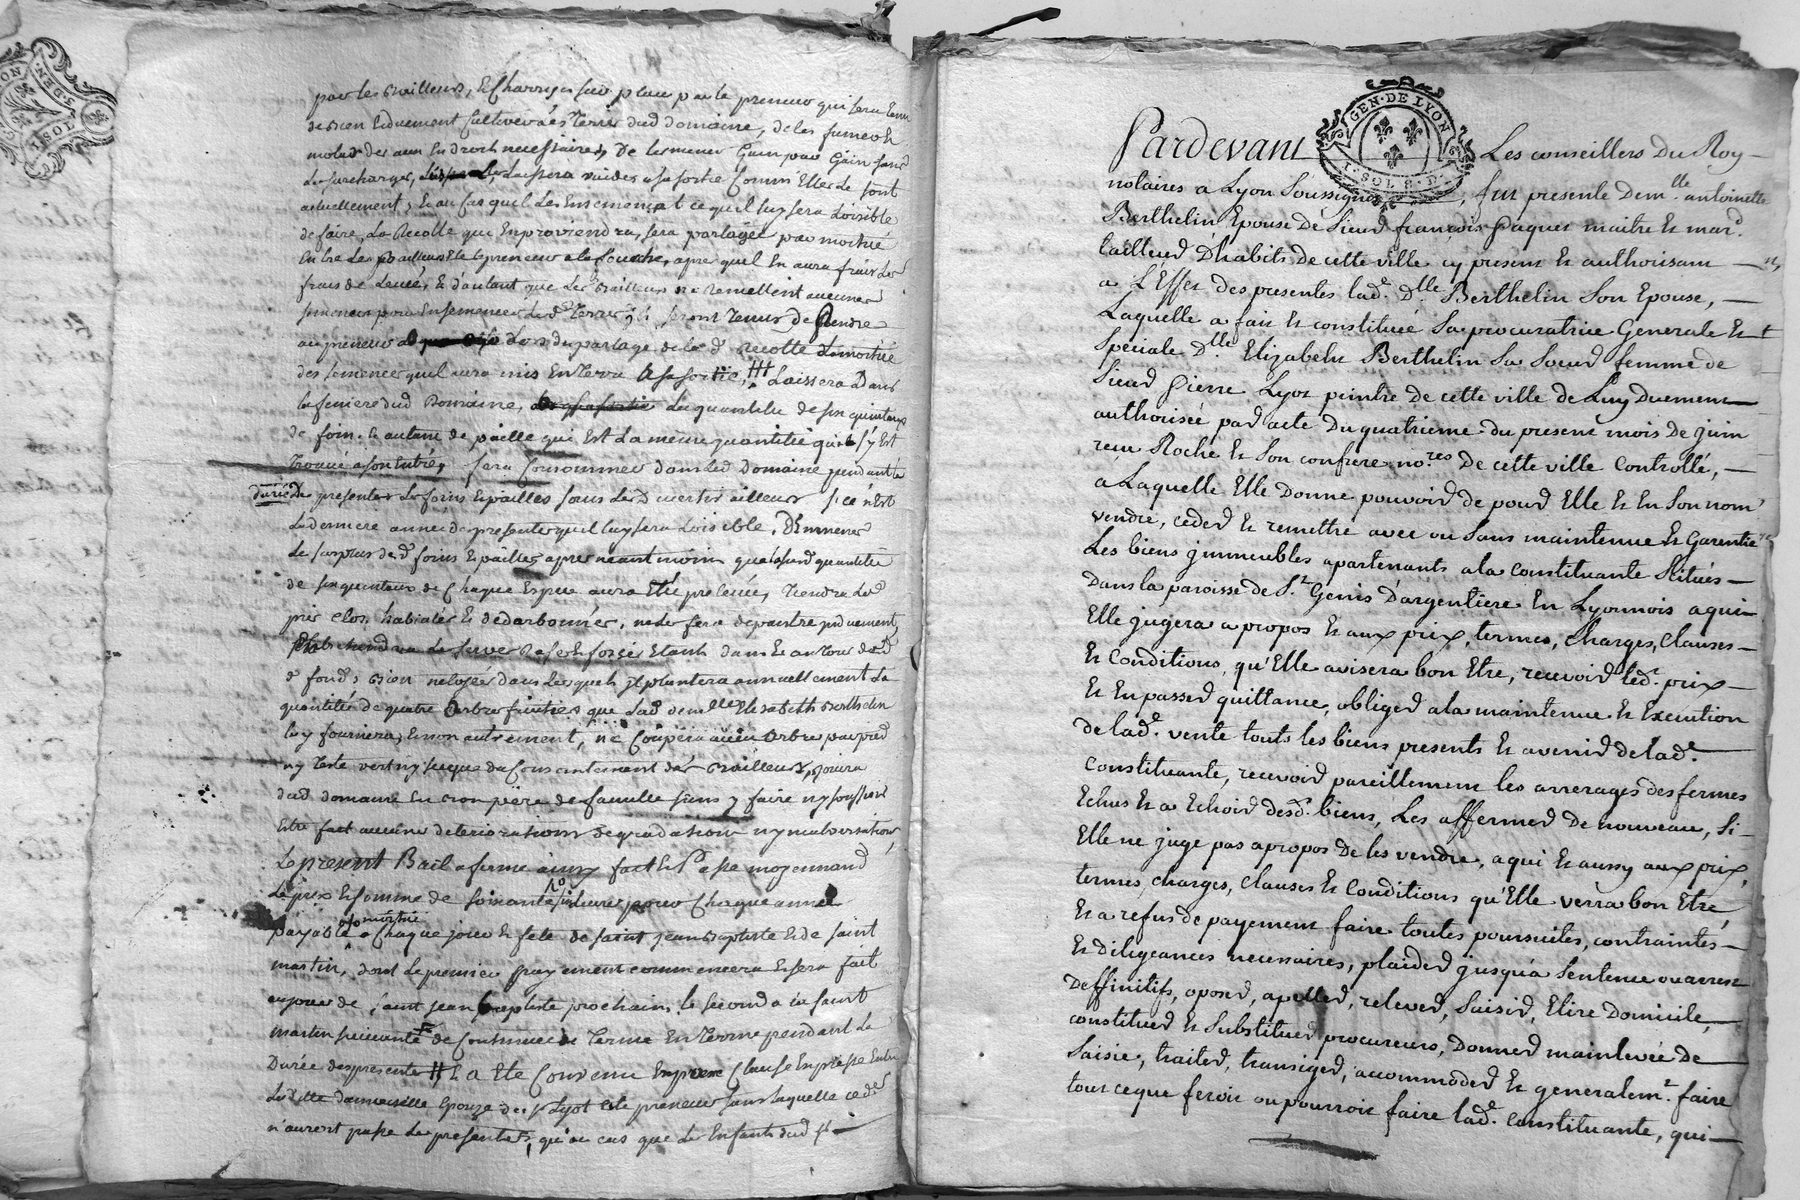 par les bailleurs, & charrois sur place par le preneur qui sera tenu
de bien & duement cultiver les Terres dud domaine, de les fumer &
aux Endroits necessaires, de les mener Gain par Gain sans
Les surcharger, Laissera vuides a sa sortie Comm'Elles Le sont
actuellement, & au cas quil Les Ensemençat ce quil luy sera Loisible
de faire, La Recolte qui En proviendra, sera partagée par moitié
Entre Les Bailleurs & le preneur a la fourche, apres quil En aura fait Les
frais de Levée, & d'autant que Les bailleurs ne remettent aucunes
semences pour Ensemencer Lesd Terres, ils seront Tenus de Rendre
au preneur Lors du partage de lad recolte La moitié
des semences quil aura mis En Terre A sa sortie, Laissera Dans
la feniere dud Domaine, La quantité de six quintaux
de foin & autant de paille qui Est La meme quantitée qui s'y Est
Trouvé a son Entrée, sera Consommer dans Led Domaine pendant la
durée Des presentes Les foins & pailles sans Les Divertir ailleurs si ce n'Est
La derniere année des presentes quil luy sera Loisible, D'Emmener
Le surplus desd foins & pailles apres neantmoins que lad quantitée
de six quintaux de Chaque Espece aura Eté prelevée, Tiendra Les
prés clos,
fonds
dans Lesquels jl plantera annuellement La
quantitée de quatre Arbres fruitiers que Lad demlle Elizabeth Berthelin
luy fournira, & non autrement, ne Coupera aucun Arbre par pied
ny Teste vert ny sec que du Consentement des Bailleurs, jouira
dud domaine En bon père de famille sans y faire ny souffrir
Estre fait aucunes deteriorations degradations ny malversations,
Le present Bail a ferme ainsy fait & Passé moyennant
Le prix & somme de soixante livres pour Chaque année
payable moitié a Chaque jour & fete de saint jean Baptiste & de saint
martin, dont Le premier payement commencera & sera fait
au jour de saint jean Baptiste prochain, le second a la saint
martin suivante & de Continuer de Terme En Terme pendant La
Durée des presentes & a Ete Convenu Expresse Clause Expresse Entre
Ladite demoiselle Epouze du sr Lyot & le preneur sans laquelle ces dtes
n'auront passé Les presentes, qu'au cas que Les Enfants dud sr
Pardevant Les conseillers Du Roy
notaires a Lyon soussignés, fut presente Demlle antoinette
Berthelin Epouse De Sieur françois Paquet maitre & mard
tailleur D'habits De cette ville cy present & authorisant
a L'Effet des presentes lade Dlle Berthelin son Epouse,
Laquelle a fait & constituée sa procuratrice Generale Et
Speciale Dlle Elizabeth Berthelin sa soeur femme de
Sieur Pierre Lyot peintre De cette ville de Luy Duement
authorisée par acte Du quatrieme du present mois De juin
reçu Roche & son confrere nores De cette ville Controllé,
a Laquelle Elle Donne pouvoir de pour Elle & En son nom
vendre, ceder & remettre avec ou sans maintenue & Garentie
Les biens jmmeubles apartenants a la constituante situés
Dans la paroisse de St Genis D'argentiere En Lyonnois a qui
Elle jugera a propos & aux prix, termes, Charges, Clauses
& Conditions, qu'Elle avisera bon Etre, recevoir ledt prix
& En passer quittance, obliger a la maintenue & Execution
de lade vente touts les biens presents & avenir de lade
constituante, recevoir pareillement les arrerages des fermes
Echus & a Echoir desds biens, Les affermer De nouveau, si
Elle ne juge pas apropos De les vendre, a qui & aussy aux prix,
termes, charges, clauses & Conditions qu'Elle verra bon Etre,
& a refus de payement faire toutes poursuites, contraintes
& Diligeances necessaires, plaider jusqu'a Sentence ou arrest
Deffinitifs, oposer, apeller, relever, Saisir, Elire Domicile,
constituer & substituer procureurs, Donner mainlevée de
Saisie, traiter, transiger, accommoder & generalemt faire
tout ce que feroit ou pourroit faire lade constituante, qui
GEN·DE LYON
1·SOL 8·D.